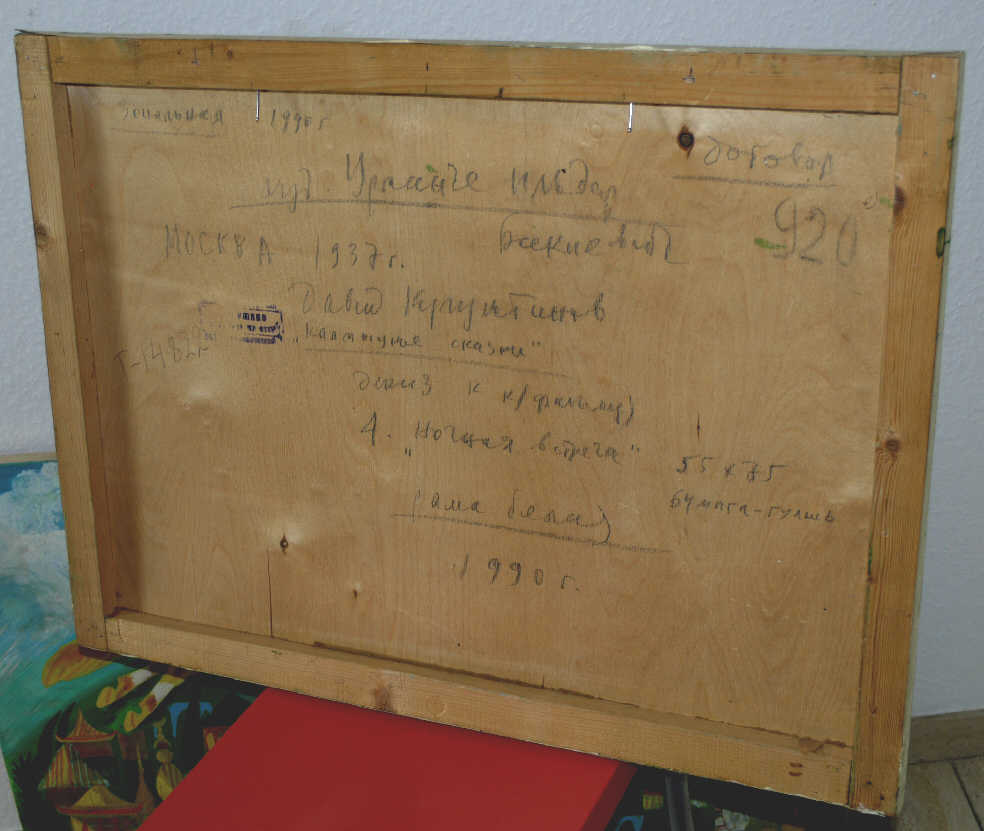 Зональная 1990 г
договор
худ. Урманче Ильдар
920
МОСКВА 1937 г.
Давид Кугультинов
"Калмыцкие сказки"
эскиз к к/фильму
4. "Ночная встреча"
55 x 75
бумага-гуашь
рама белая
1990 г.